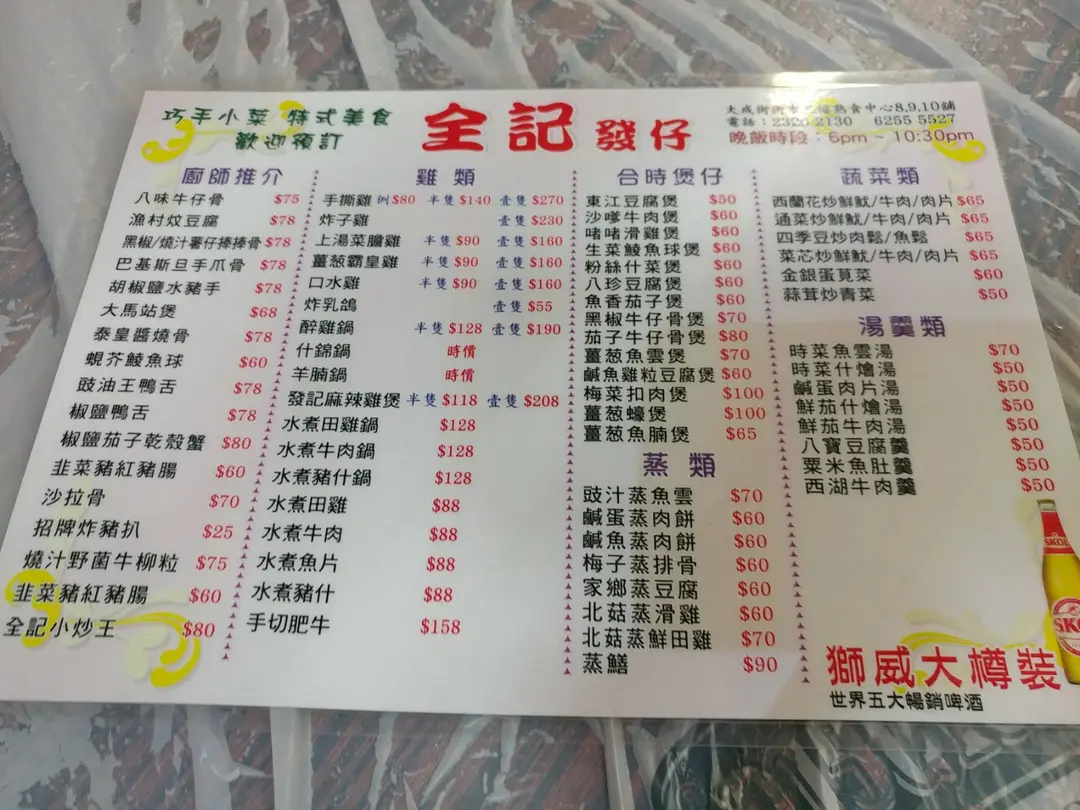 巧手小菜 特式美食
歡迎預訂
全記 發仔
大成街街市 熟食中心8,9,10舖
電話：2320 2130 6255 5527
晚飯時段：6pm - 10:30pm
廚師推介
八味牛仔骨 $75
漁村炆豆腐 $78
黑椒/燒汁薯仔捧捧骨 $78
巴基斯旦手爪骨 $78
胡椒鹽水豬手 $78
大馬站煲 $68
泰皇醬燒骨 $78
蜆芥鯪魚球 $60
豉油王鴨舌 $78
椒鹽鴨舌 $78
椒鹽茄子乾殼蟹 $80
韭菜豬紅豬腸 $60
沙拉骨 $70
招牌炸豬扒 $25
燒汁野菌牛柳粒 $75
韭菜豬紅豬腸 $60
全記小炒王 $80
雞類
手撕雞 例$80 半隻$140 壹隻$270
炸子雞 壹隻$230
上湯菜膽雞 半隻$90 壹隻$160
薑葱霸皇雞 半隻$90 壹隻$160
口水雞 半隻$90 壹隻$160
炸乳鴿 壹隻$55
醉雞鍋 半隻$128 壹隻$190
什錦鍋 時價
羊腩鍋 時價
發記麻辣雞煲 半隻$118 壹隻$208
水煮田雞鍋 $128
水煮牛肉鍋 $128
水煮豬什鍋 $128
水煮田雞 $88
水煮牛肉 $88
水煮魚片 $88
水煮豬什 $88
手切肥牛 $158
合時煲仔
東江豆腐煲 $50
沙嗲牛肉煲 $60
啫啫滑雞煲 $60
生菜鯪魚球煲 $60
粉絲什菜煲 $60
八珍豆腐煲 $60
魚香茄子煲 $60
黑椒牛仔骨煲 $70
茄子牛仔骨煲 $80
薑葱魚雲煲 $70
鹹魚雞粒豆腐煲 $60
梅菜扣肉煲 $100
薑葱蠔煲 $100
薑葱魚腩煲 $65
蒸類
豉汁蒸魚雲 $70
鹹蛋蒸肉餅 $60
鹹魚蒸肉餅 $60
梅子蒸排骨 $60
家鄉蒸豆腐 $60
北菇蒸滑雞 $60
北菇蒸鮮田雞 $70
蒸鱔 $90
蔬菜類
西蘭花炒鮮魷/牛肉/肉片 $65
通菜炒鮮魷/牛肉/肉片 $65
四季豆炒肉鬆/魚鬆 $65
菜芯炒鮮魷/牛肉/肉片 $65
金銀蛋莧菜 $60
蒜茸炒青菜 $50
湯羹類
時菜魚雲湯 $70
時菜什燴湯 $50
鹹蛋肉片湯 $50
鮮茄什燴湯 $50
鮮茄牛肉湯 $50
八寶豆腐羹 $50
粟米魚肚羹 $50
西湖牛肉羹 $50
SKOL
SKO
獅威大樽裝
世界五大暢銷啤酒